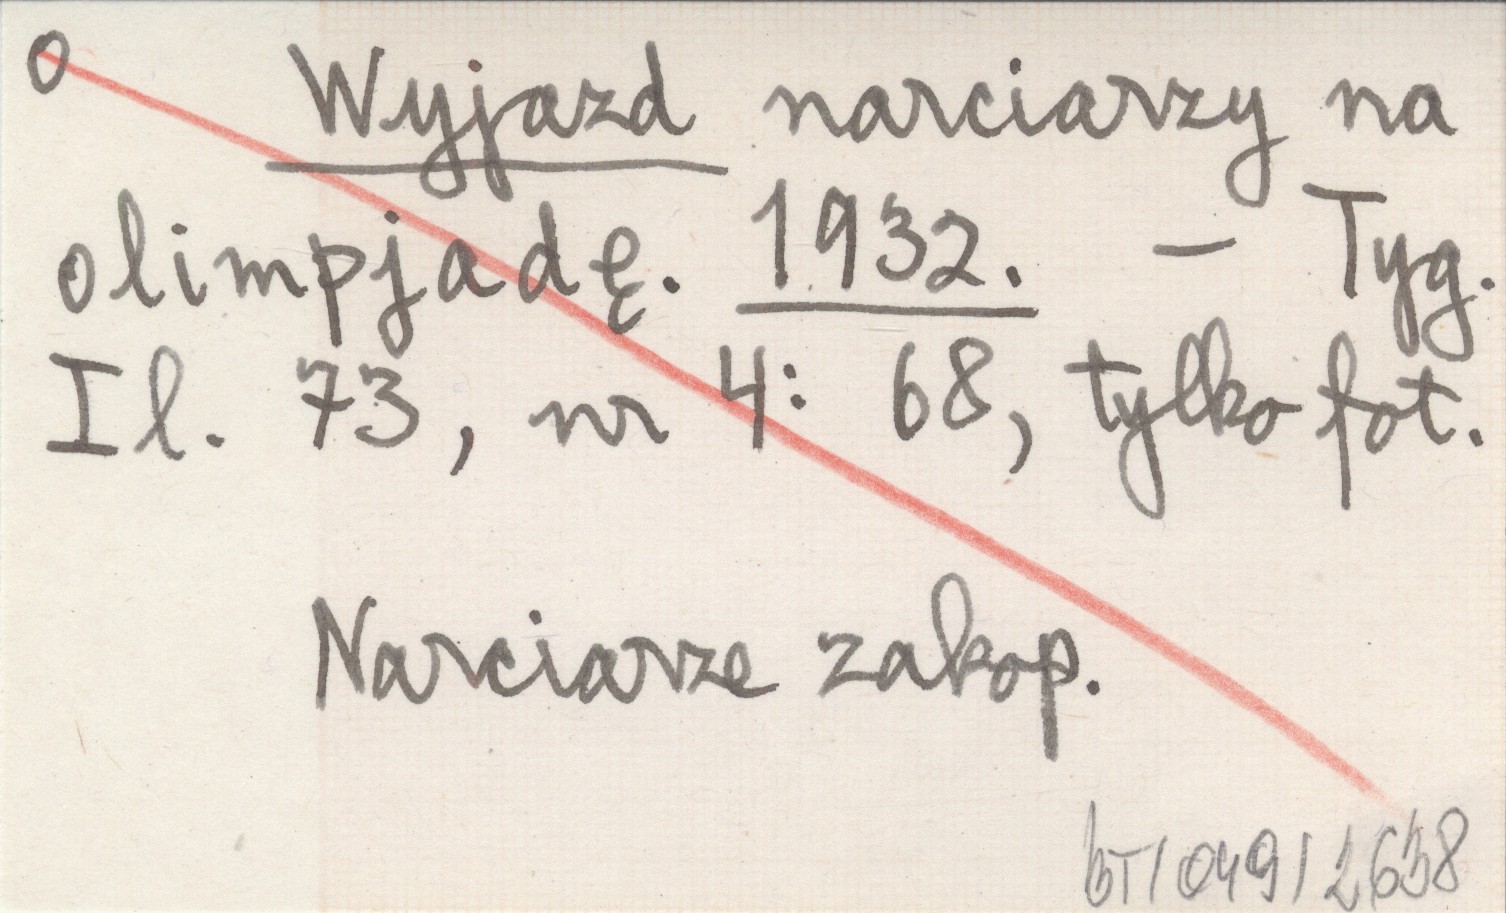 o Wyjazd narciarzy na
olimpjadę. 1932. – Tyg.
Il. 73, nr 4: 68, tylko fot.
Narciarze zakop.
BT/049/2638